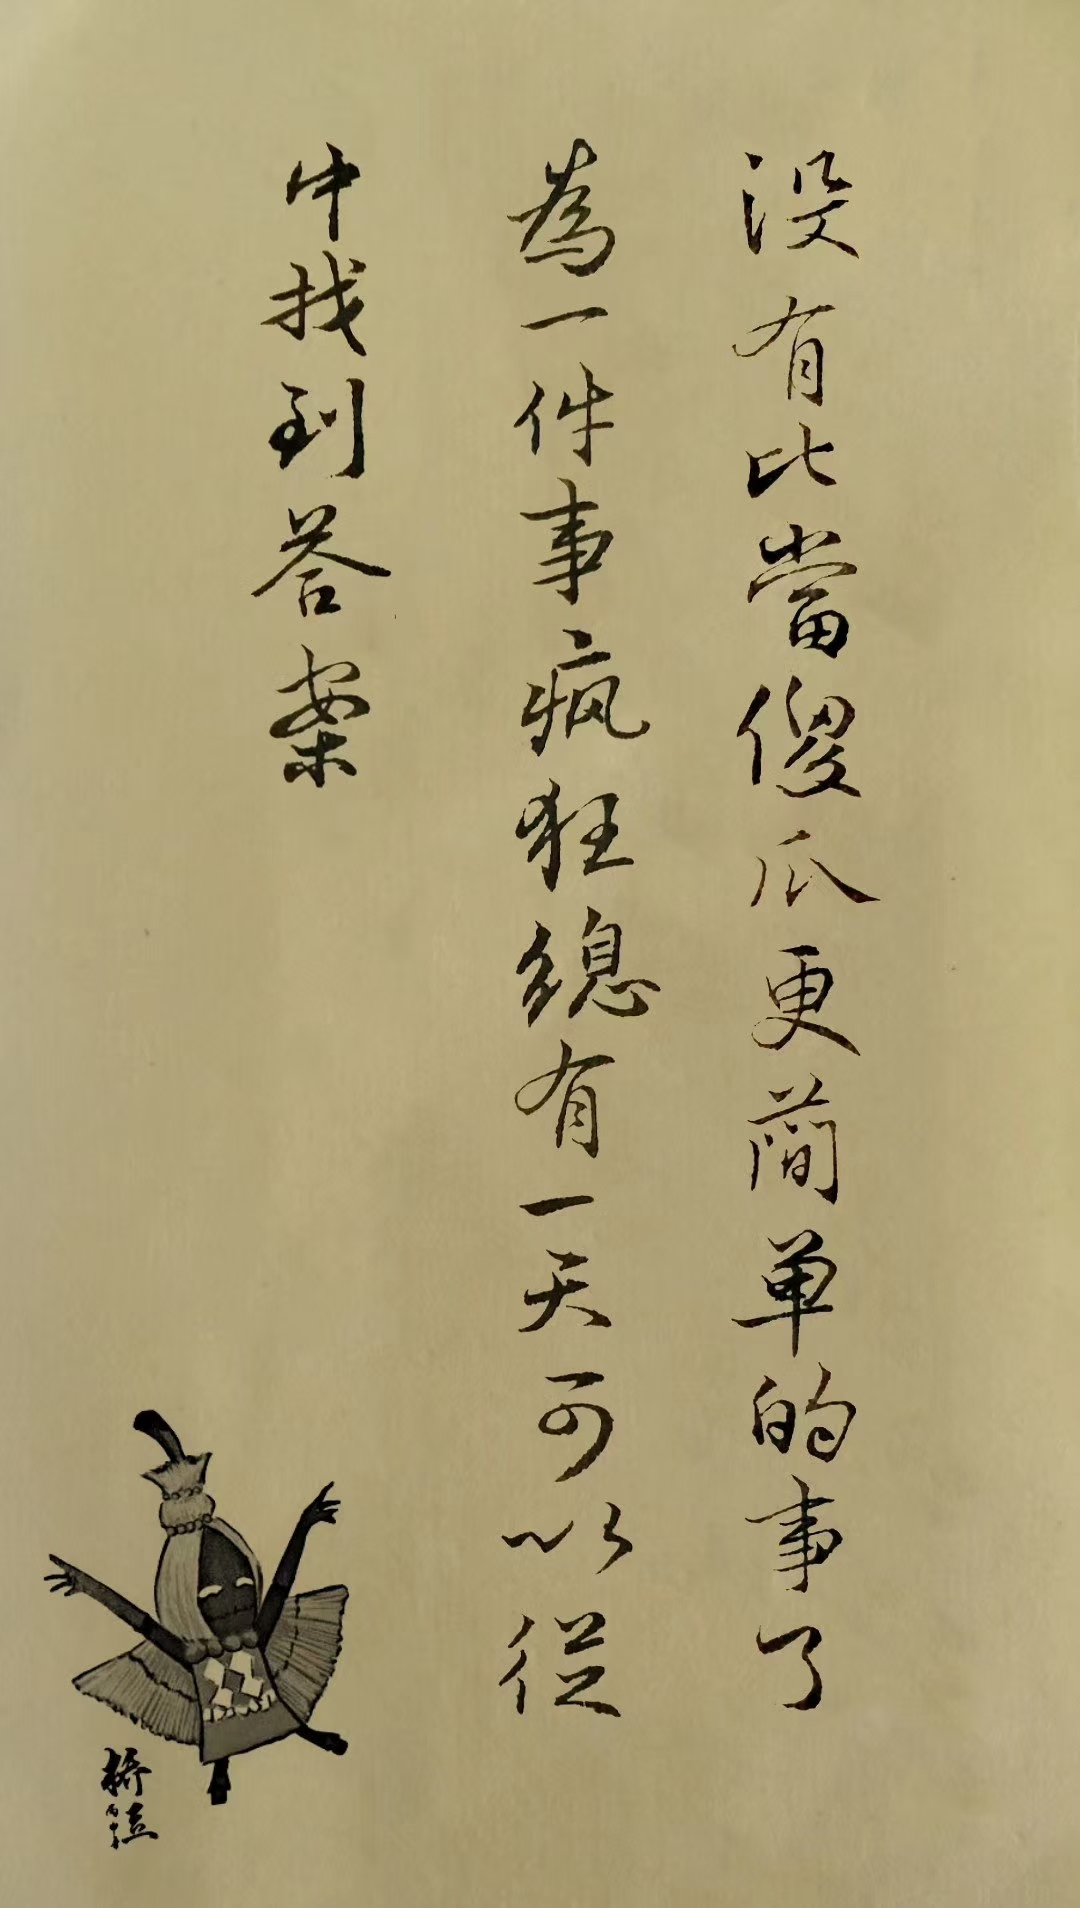 没有比當傻瓜更簡单的事了
為一件事疯狂總有一天可以從
中找到答案